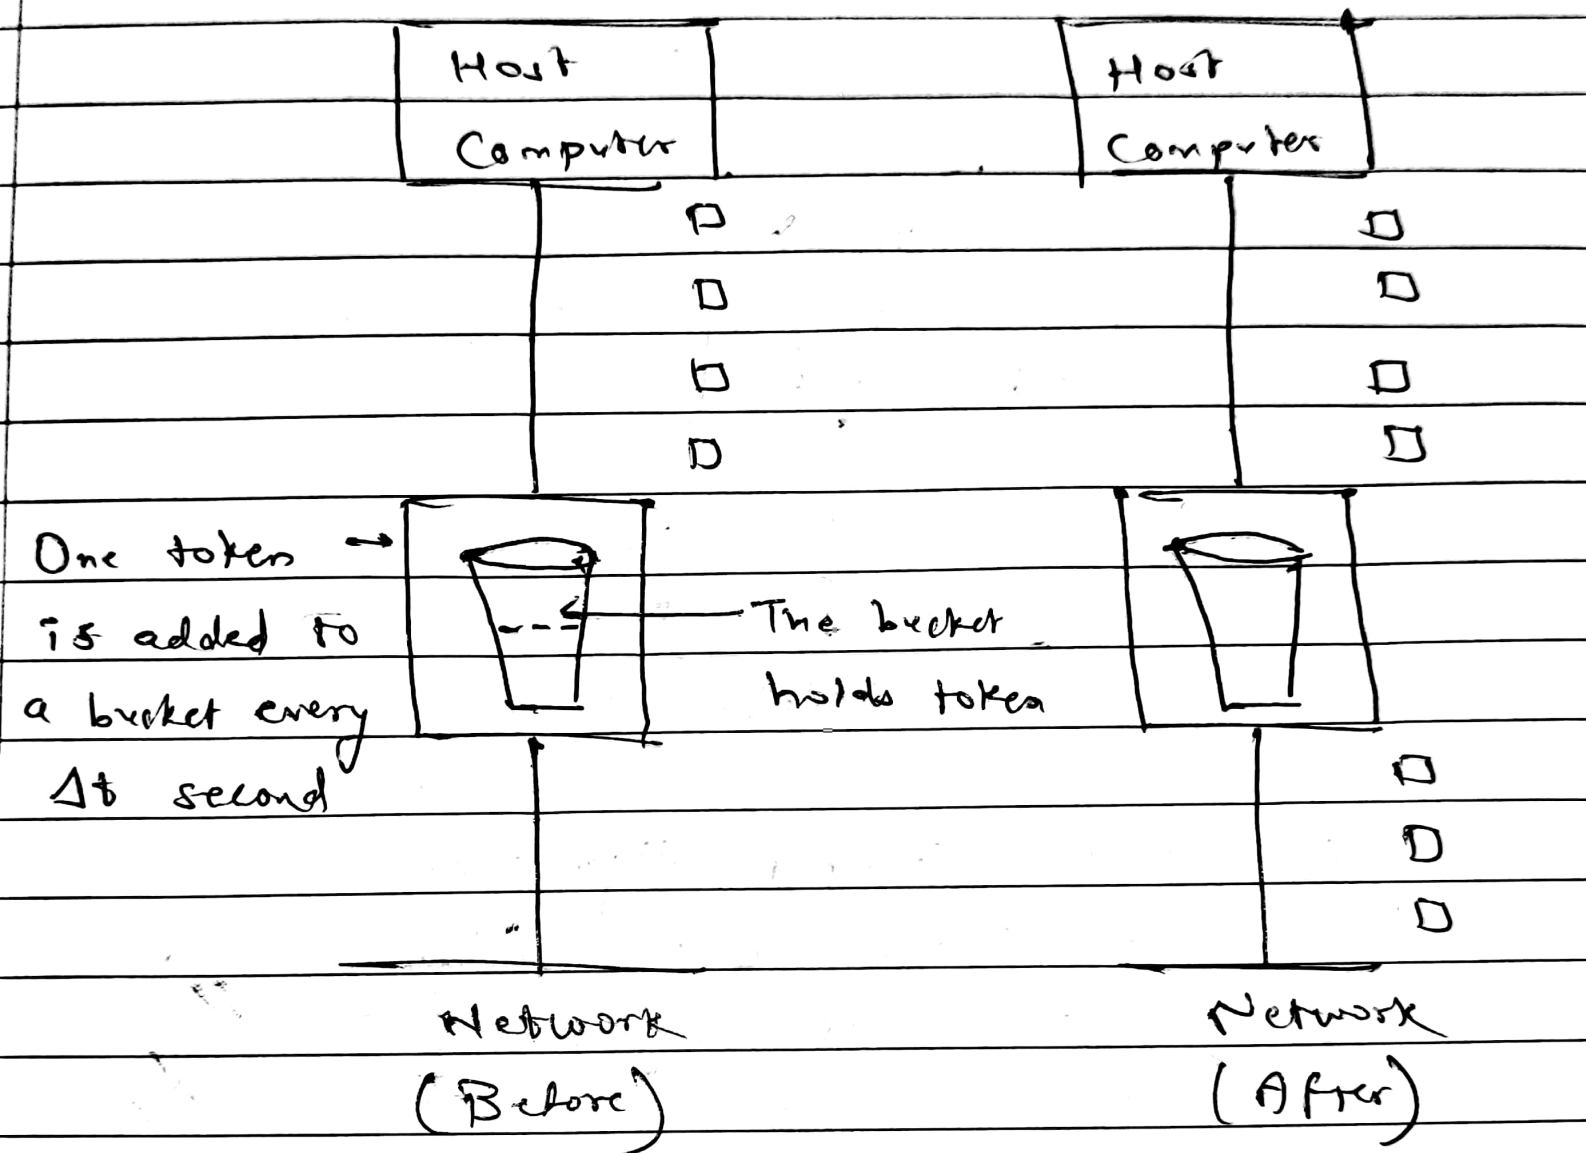 Host
Computer
Host
Computer
One token
is added to
a bucket every
Δt second
The bucket
holds token
Network
(Before)
Network
(After)